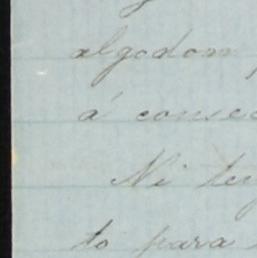 algodom
á consec
Ni ten
to para